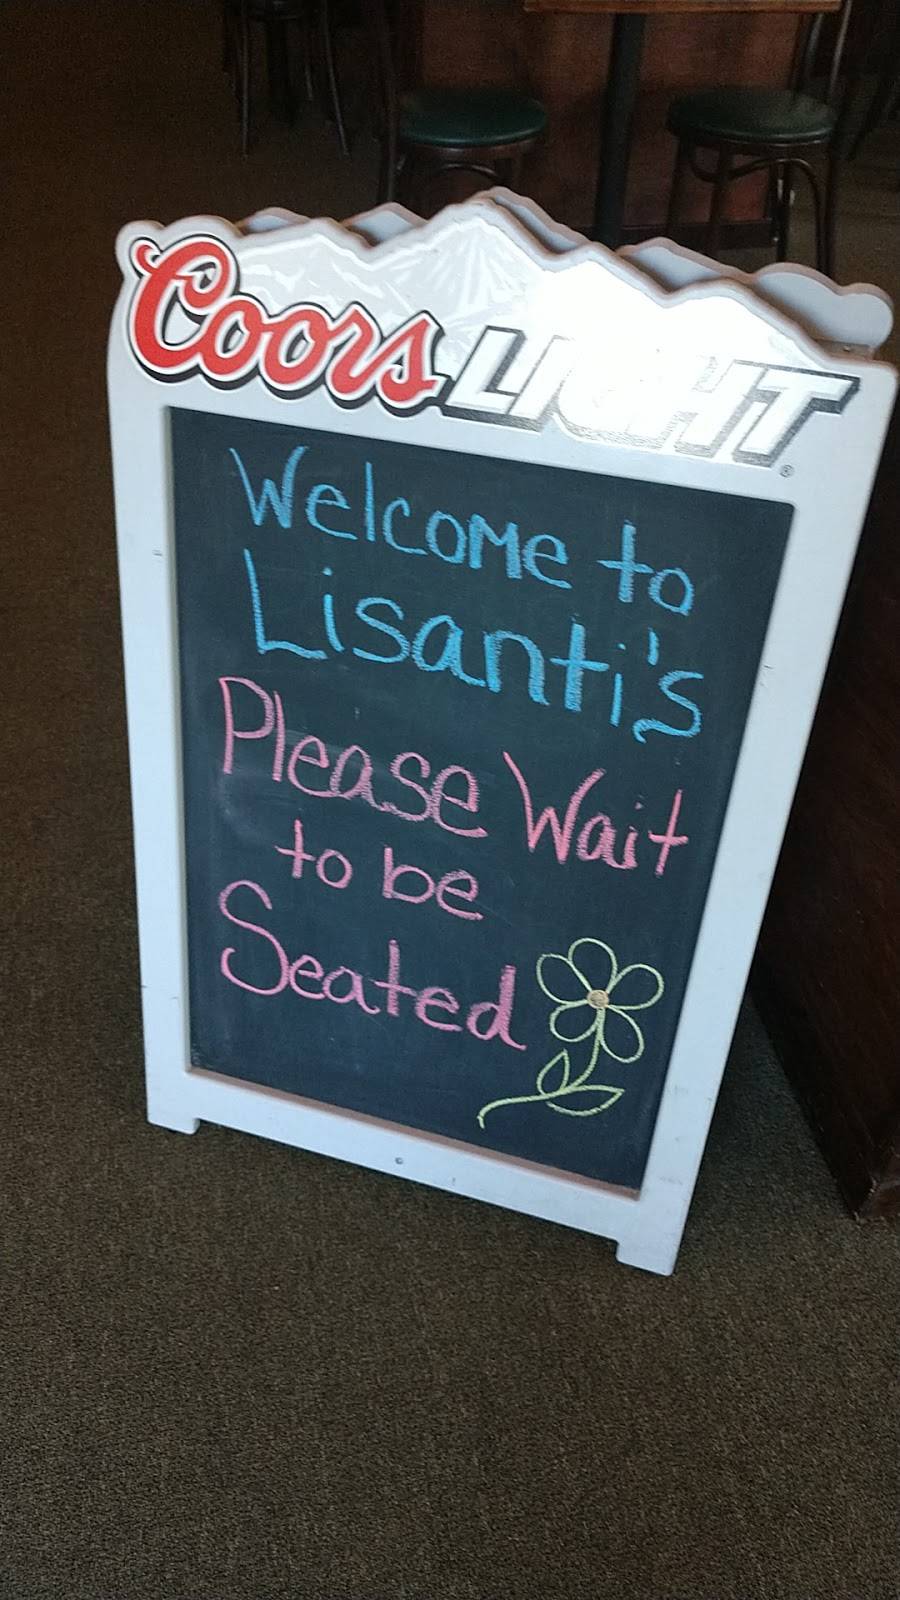 Coors LIGHT®
Welcome to
Lisanti's
Please Wait
to be
Seated